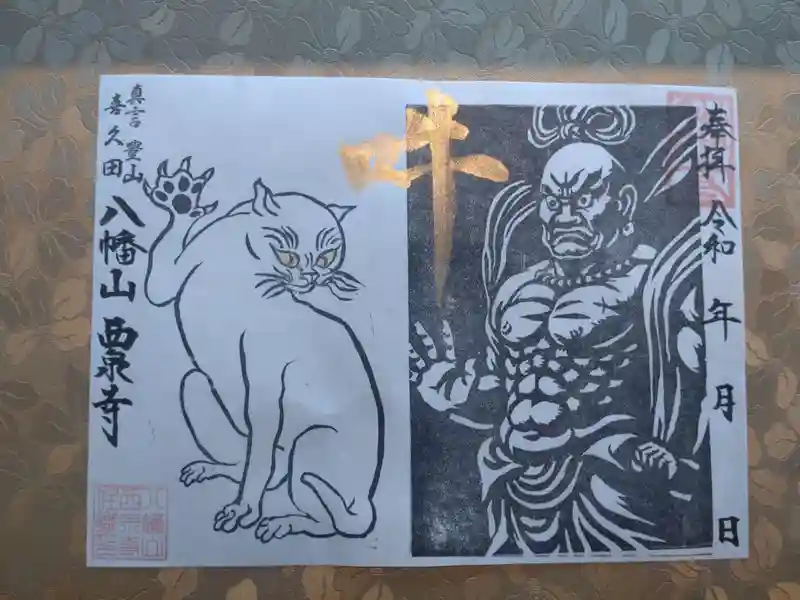 奉拝 令和 年 月 日
叶
真言 豊山
喜久田
八幡山 西泉寺